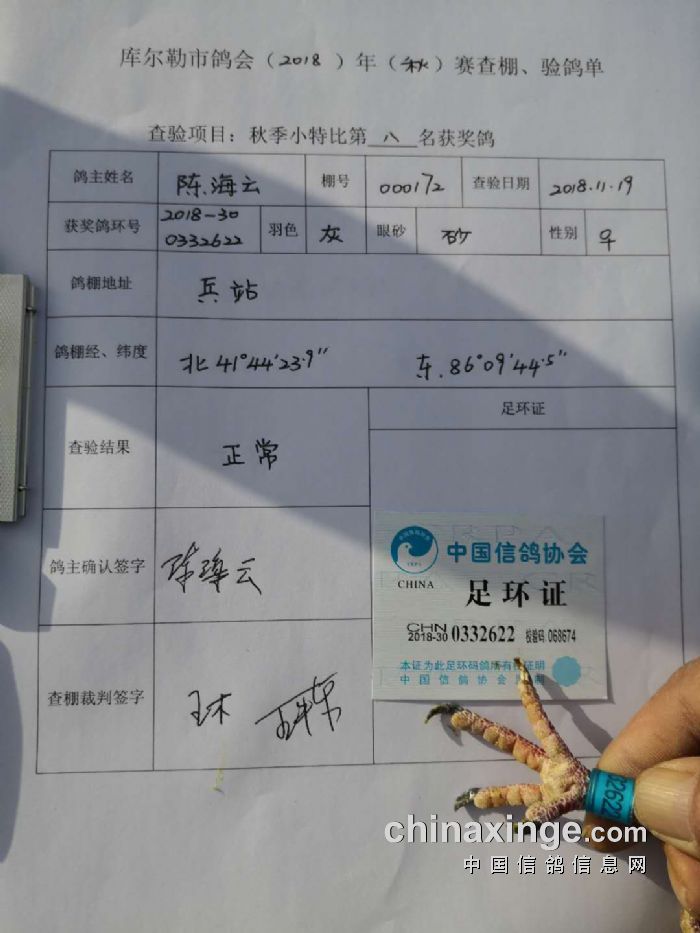 库尔勒市鸽会（2018）年（秋）赛查棚、验鸽单
查验项目：秋季小特比第 八 名获奖鸽
鸽主姓名 陈海云 棚号 000172 查验日期 2018.11.19
获奖鸽环号 2018-30 0332622 羽色 灰 眼砂 砂 性别 ♀
鸽棚地址 兵站
鸽棚经、纬度 北41°44′23.9″ 东.86°09′44.5″
查验结果 正常
足环证
鸽主确认签字 陈海云
查棚裁判签字
中国信鸽协会
CHINA 足环证
CHN
2018-30 0332622 校验码 068674
本证为此足环码鸽所有权证明
中国信鸽协会
chinaxinge.com
中国信鸽信息网